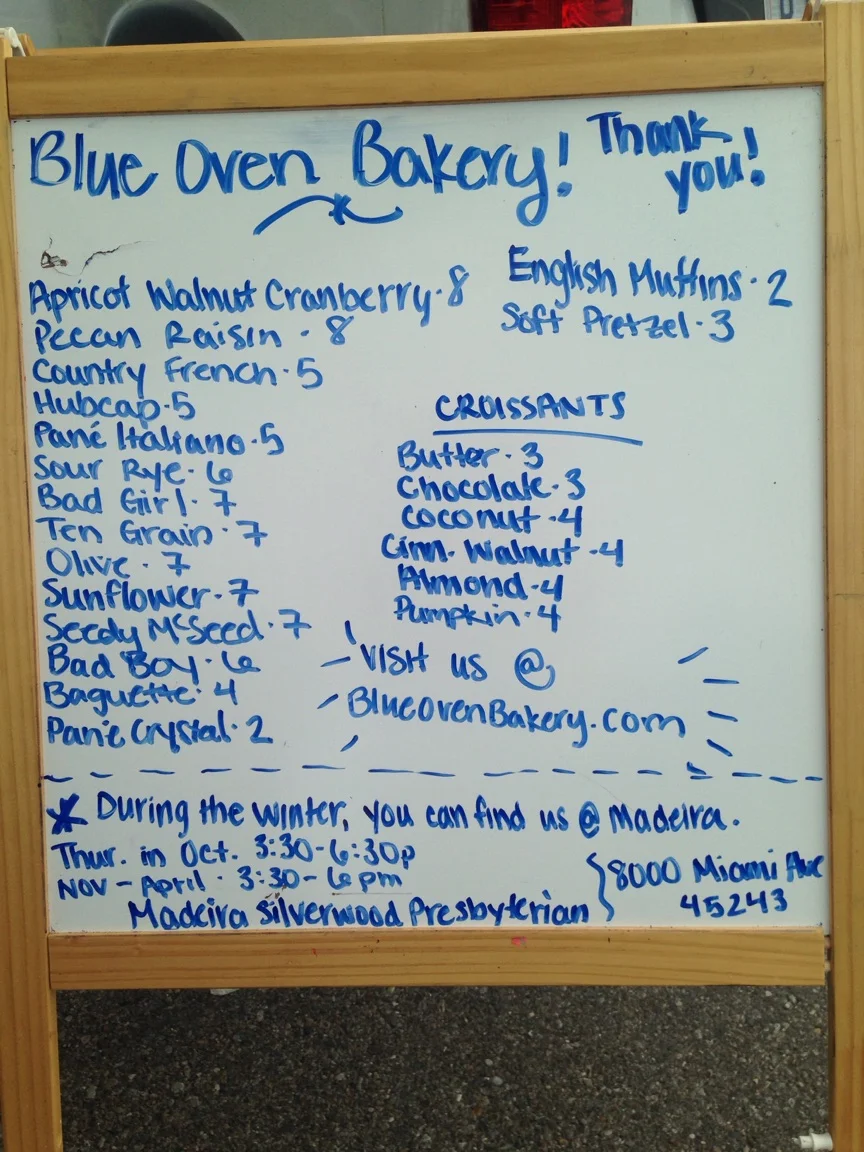 Blue Oven Bakery! Thank you!
Apricot Walnut Cranberry · 8
Pecan Raisin · 8
Country French · 5
Hubcap · 5
Pané Italiano · 5
Sour Rye · 6
Bad Girl · 7
Ten Grain · 7
Olive · 7
Sunflower · 7
Seedy McSeed · 7
Bad Boy · 6
Baguette · 4
Pané Crystal · 2
English Muffins · 2
Soft Pretzel · 3
CROISSANTS
Butter · 3
Chocolate · 3
Coconut · 4
Cinn. Walnut · 4
Almond · 4
Pumpkin · 4
Visit us @
BlueovenBakery.com
* During the winter, you can find us @ Madeira.
Thur. in Oct. 3:30-6:30p
Nov - April · 3:30-6pm
Madeira Silverwood Presbyterian
8000 Miami Ave
45243